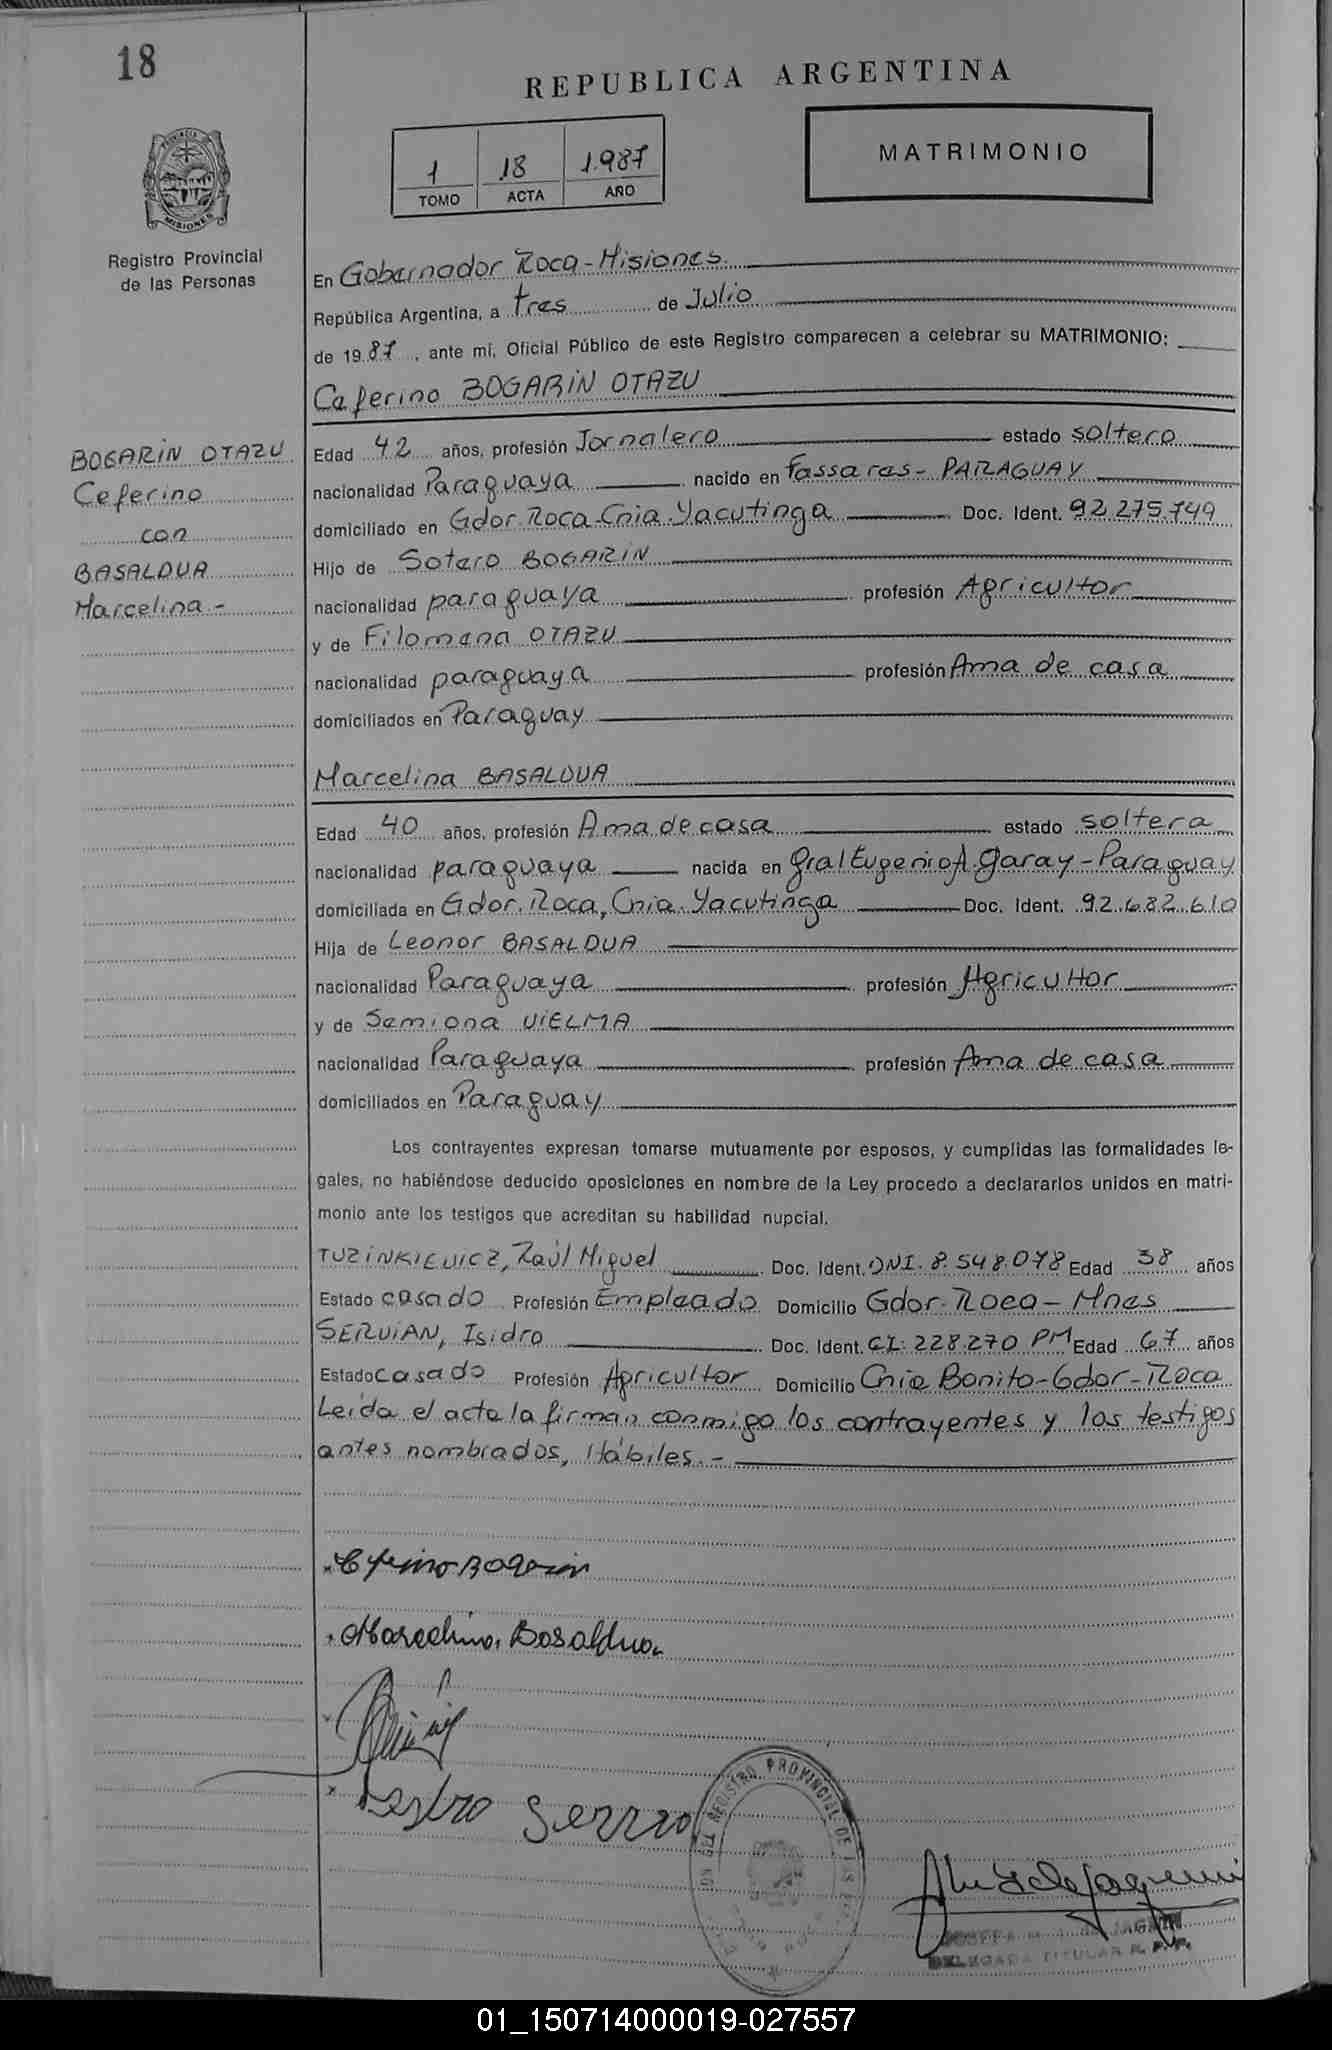 18
REPUBLICA ARGENTINA
1 18 1.987
TOMO ACTA AÑO
MATRIMONIO
MISIONES
Registro Provincial
de las Personas
En Gobernador Roca - Misiones.
República Argentina, a tres de Julio
de 1987, ante mí, Oficial Público de este Registro comparecen a celebrar su MATRIMONIO:
Ceferino BOGARIN OTAZU
BOGARIN OTAZU
Ceferino
con
BASALDUA
Marcelina -
Edad 42 años, profesión Jornalero estado soltero
nacionalidad Paraguaya nacido en Fassaras - PARAGUAY
domiciliado en Gdor. Roca - Cnia. Yacutinga Doc. Ident. 92.275.749
Hijo de Sotero BOGARIN
nacionalidad paraguaya profesión Agricultor
y de Filomena OTAZU
nacionalidad paraguaya profesión Ama de casa
domiciliados en Paraguay
Marcelina BASALDUA
Edad 40 años, profesión Ama de casa estado soltera
nacionalidad paraguaya nacida en Gral Eugenio A. Garay - Paraguay
domiciliada en Gdor. Roca, Cnia. Yacutinga Doc. Ident. 92.682.610
Hija de Leonor BASALDUA
nacionalidad Paraguaya profesión Agricultor
y de Semiona VIELMA
nacionalidad Paraguaya profesión Ama de casa
domiciliados en Paraguay
Los contrayentes expresan tomarse mutuamente por esposos, y cumplidas las formalidades le-
gales, no habiéndose deducido oposiciones en nombre de la Ley procedo a declararlos unidos en matri-
monio ante los testigos que acreditan su habilidad nupcial.
TUZINKIEVICZ, Raúl Miguel Doc. Ident. DNI. 8.548.078 Edad 38 años
Estado casado Profesión Empleado Domicilio Gdor. Roca - Mnes
SERVIAN, Isidro Doc. Ident. CI: 228.270 PM Edad 67 años
Estado casado Profesión Agricultor Domicilio Cnia Bonito - Gdor - Roca
Leída el acta la firman conmigo los contrayentes y los testigos
antes nombrados, Hábiles. -
Marcelina Basaldua
REGISTRO PROVINCIAL DE LAS
DELEGADA TITULAR R. P. P.
01_150714000019-027557